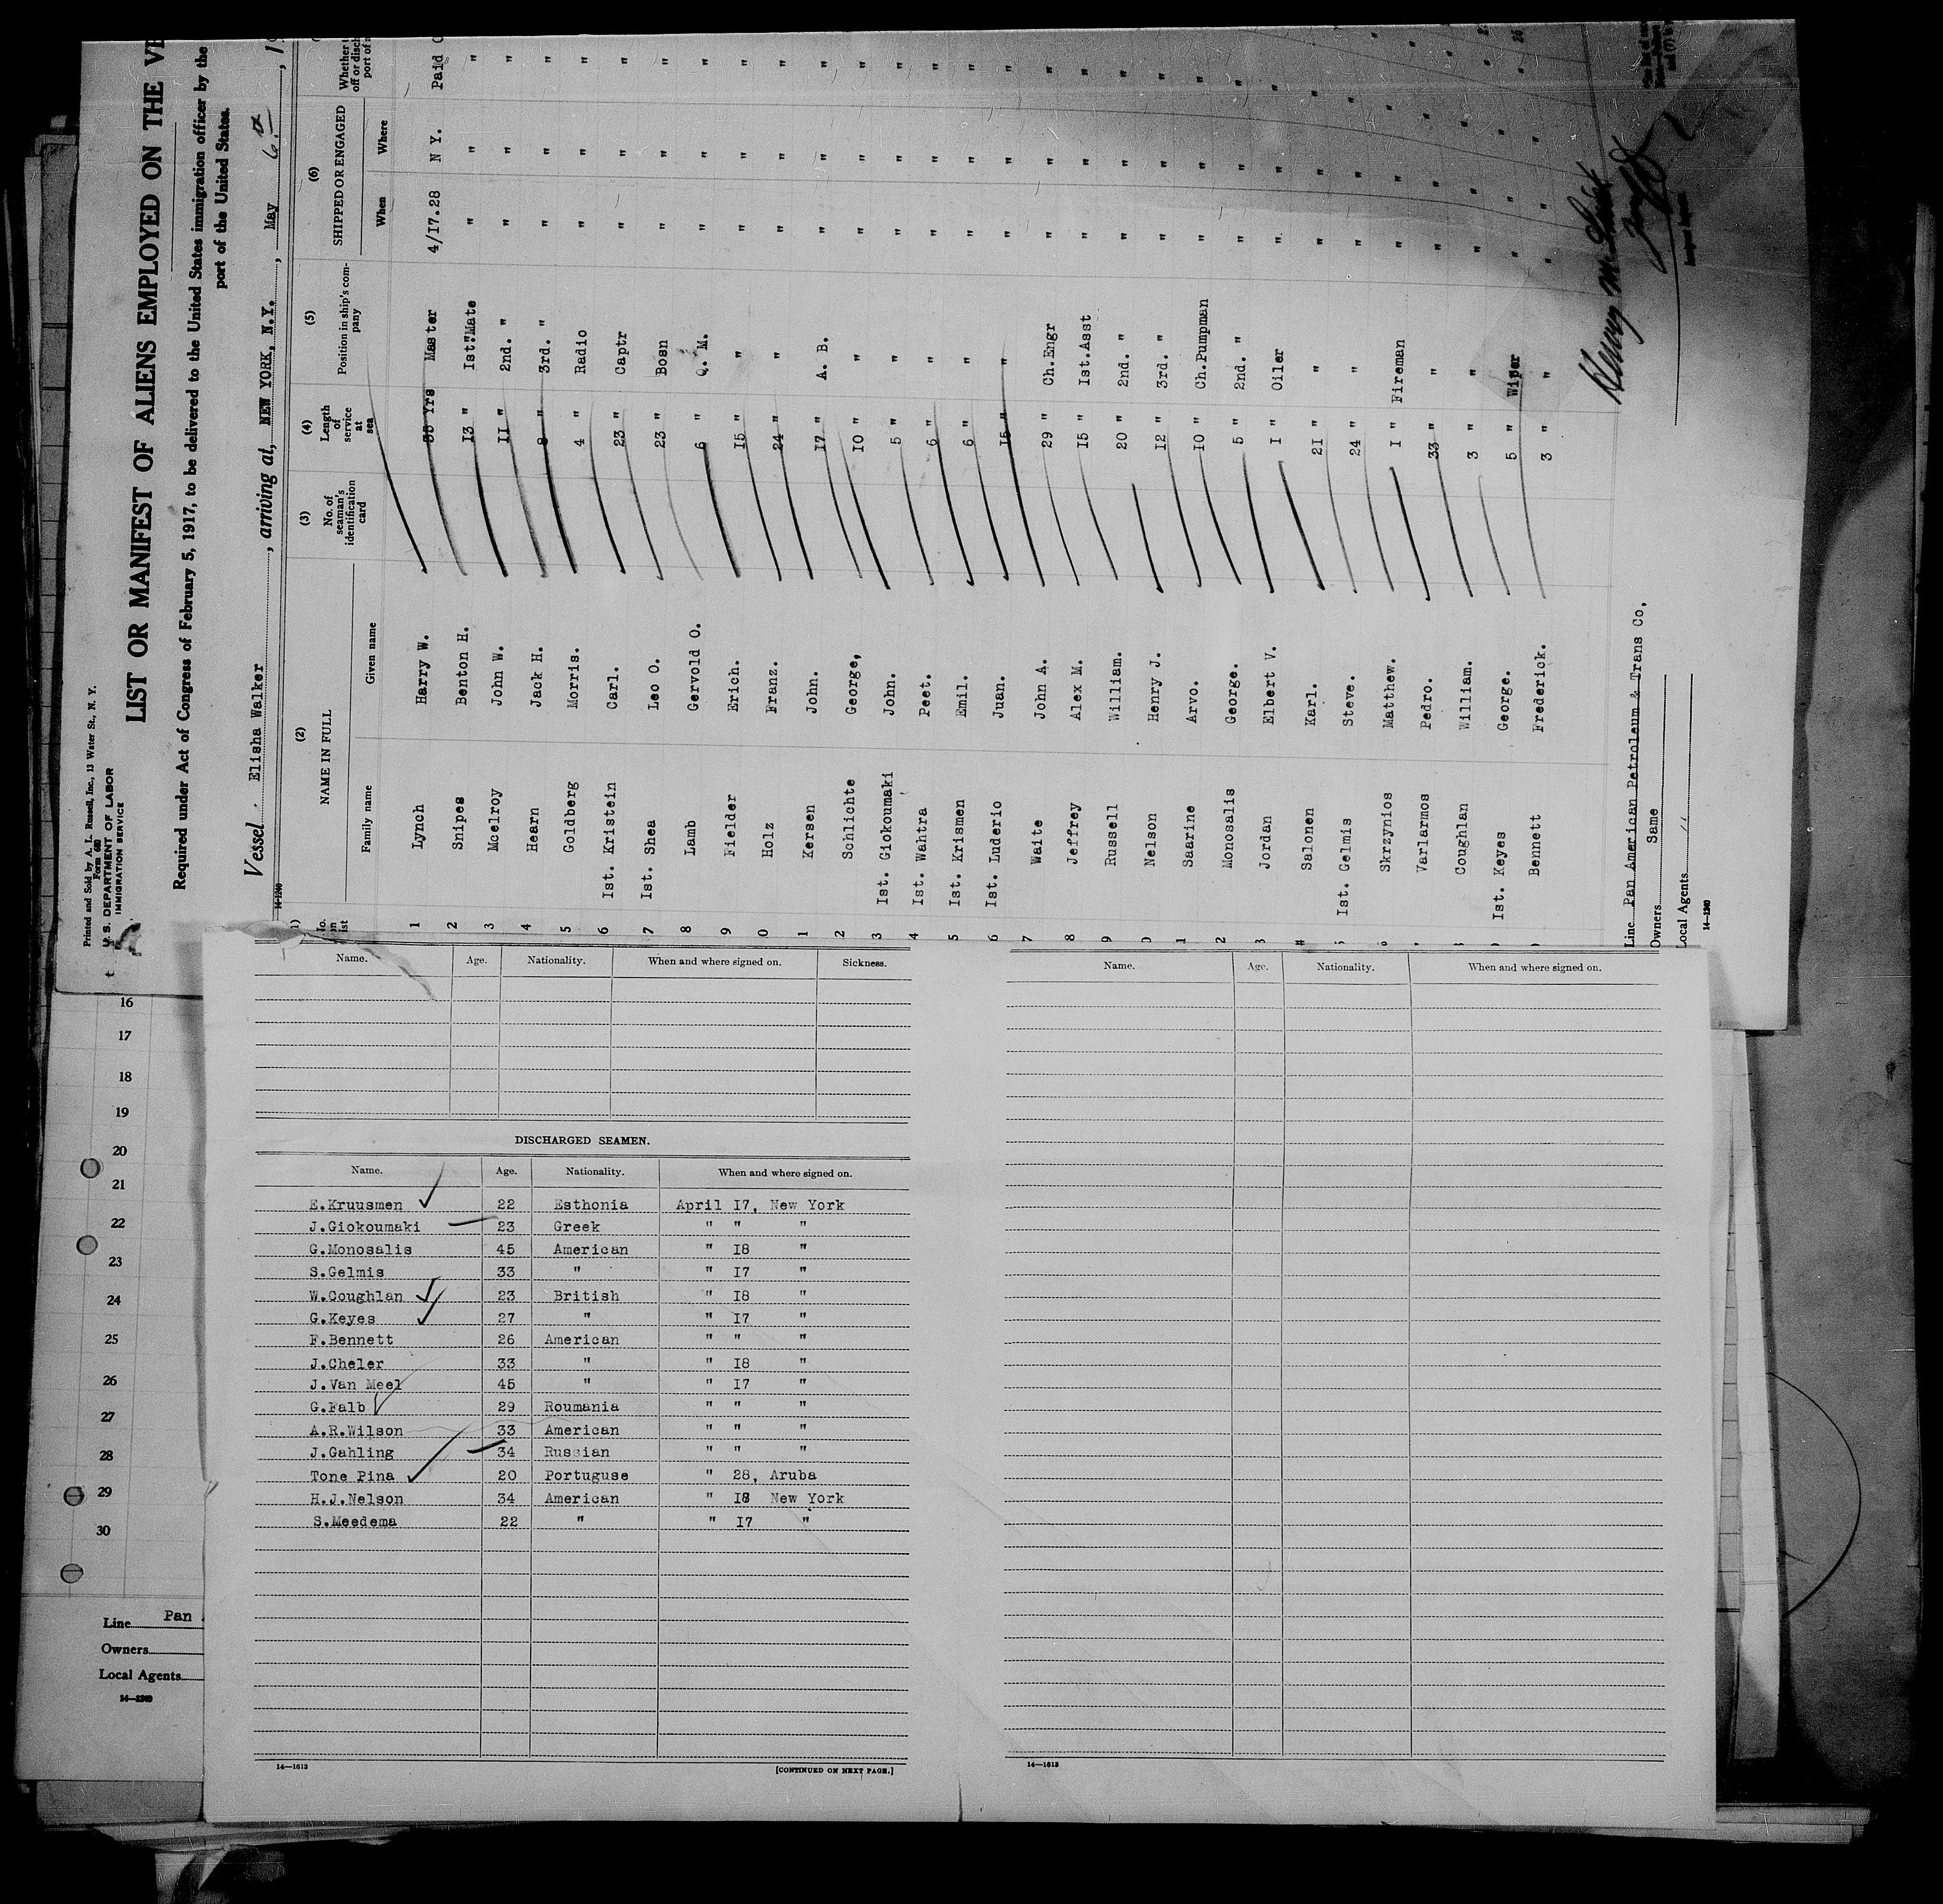 Printed and Sold by A. L. Russell, Inc., 13 Water St., N. Y.
Form 680
U. S. DEPARTMENT OF LABOR
IMMIGRATION SERVICE
LIST OR MANIFEST OF ALIENS EMPLOYED ON THE VE
Required under Act of Congress of February 5, 1917, to be delivered to the United States immigration officer by the
port of the United States.
Vessel Elisha Walker, arriving at, NEW YORK, N.Y., May 6th, 19
14-1240
(2) (3) (4) (5) (6)
No. on list NAME IN FULL Family name Given name No. of seaman's identification card Length of service at sea Position in ship's company SHIPPED OR ENGAGED When Where
1 Lynch Harry W. 35 Yrs Master 4/17.28 N Y. Paid
2 Snipes Benton H. 13 " Ist."Mate " " "
3 Mcelroy John W. 11 " 2nd. " " " "
4 Hearn Jack H. 8 " 3rd. " " " "
5 Goldberg Morris. 4 " Radio " " "
6 Ist. Kristein Carl. 23 " Captr " " "
7 Ist. Shea Leo O. 23 " Bosn " " "
8 Lamb Gervold O. 6 " Q. M. " " "
9 Fielder Erich. 15 " " " " "
0 Holz Franz. 24 " " " " "
1 Kersen John. 17 " A. B. " " "
2 Schlichte George, 10 " " " " "
3 Ist. Giokoumaki John. 5 " " " " "
4 Ist. Wahtra Peet. 6 " " " " "
5 Ist. Krismen Emil. 6 " " " " "
6 Ist. Luderio Juan. 15 " " " " "
7 Waite John A. 29 " Ch.Engr " " "
8 Jeffrey Alex M. 15 " Ist.Asst " " "
9 Russell William. 20 " 2nd. " " " "
0 Nelson Henry J. 12 " 3rd. " " " "
1 Saarine Arvo. 10 " Ch.Pumpman " " "
2 Monosalis George. 5 " 2nd. " " " "
3 Jordan Elbert V. 1 " Oiler " " "
Salonen Karl. 21 " " " " "
Ist. Gelmis Steve. 24 " " " " "
Skrzynios Matthew. 1 " Fireman " " "
Varlarmos Pedro. 33 " " " " "
Coughlan William. 3 " " " " "
Ist. Keyes George. 5 " Wiper " " "
Bennett Frederick. 3 " " " "
Line Pan American Petroleum & Trans Co,
Owners Same
Local Agents "
14-1240
Name. Age. Nationality. When and where signed on. Sickness.
DISCHARGED SEAMEN.
Name. Age. Nationality. When and where signed on.
E.Kruusmen 22 Esthonia April 17, New York
J.Giokoumaki 23 Greek " " "
G.Monosalis 45 American " 18 "
S.Gelmis 33 " " 17 "
W.Coughlan 23 British " 18 "
G.Keyes 27 " " 17 "
F.Bennett 26 American " " "
J.Cheler 33 " " 18 "
J.Van Meel 45 " " 17 "
G.Falb 29 Roumania " " "
A.R.Wilson 33 American " " "
J.Gahling 34 Russian " " "
Tone Pina 20 Portuguse " 28, Aruba
H.J.Nelson 34 American " 18 New York
S.Meedema 22 " " 17 "
14—1613
[CONTINUED ON NEXT PAGE.]
Name. Age. Nationality. When and where signed on.
14—1613
16
17
18
19
20
21
22
23
24
25
26
27
28
29
30
Line Pan
Owners
Local Agents
14—1240